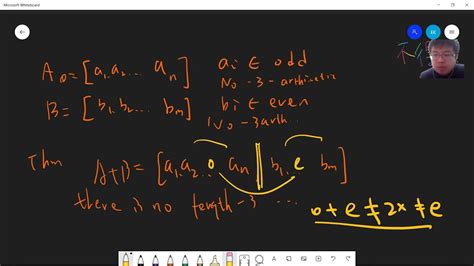 Microsoft Whiteboard
A₀ = [a₁, a₂ ... aₙ] aᵢ ∈ odd
No - 3 - arthimetic
B = [b₁, b₂ ... bₘ] bᵢ ∈ even
No - 3 arth...
Thm A+B = [a₁, a₂ .. o aₙ || b₁.. e bₘ]
there is no length-3 ...
o + e ≠ 2x ≠ e